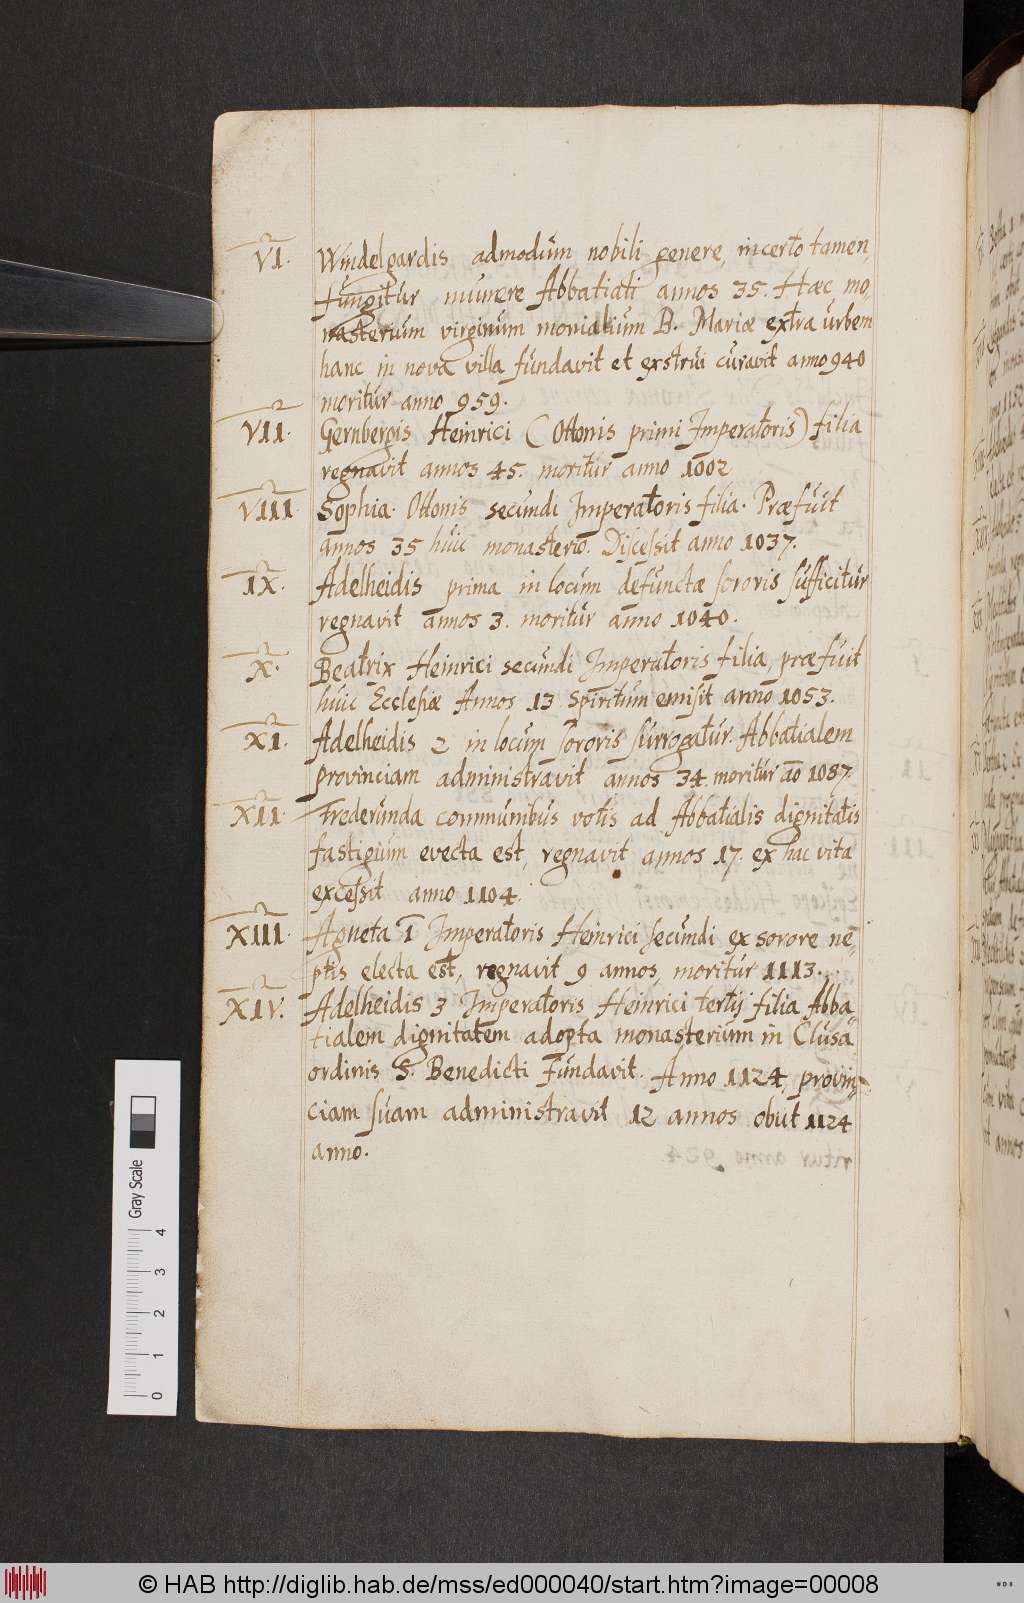 VI. Windelgardis admodum nobili genere, incerto tamen,
fungitur munere Abbatiali annos 35. Haec mo-
nasterium virginum monialium B. Mariae extra urbem
hanc in nova villa fundavit et exstrui curavit anno 940
moritur anno 959.
VII. Gernbergis Heinrici (Ottonis primi Imperatoris) filia
regnavit annos 45. moritur anno 1002
VIII. Sophia. Ottonis secundi Imperatoris filia. Praefuit
annos 35 huic monasterio. Discessit anno 1037.
IX. Adelheidis prima in locum defunctae sororis sufficitur
regnavit annos 3. moritur anno 1040.
X. Beatrix Heinrici secundi Imperatoris filia, praefuit
huic Ecclesiae Annos 13 spiritum emisit anno 1053.
XI. Adelheidis 2 in locum sororis surrogatur. Abbatialem
provinciam administravit annos 34. moritur ao 1087.
XII. Frederunda communibus votis ad Abbatialis dignitatis
fastigium evecta est, regnavit annos 17. ex hac vita
excessit anno 1104.
XIII. Agneta 1 Imperatoris Heinrici secundi ex sorore ne-
ptis electa est, regnavit 9 annos, moritur 1113.
XIV. Adelheidis 3 Imperatoris Heinrici tertij filia Abba-
tialem dignitatem adepta monasterium in Clusa
ordinis S. Benedicti Fundavit. Anno 1124, provin-
ciam suam administravit 12 annos obiit 1124
anno.
Gray Scale
0 1 2 3 4
© HAB http://diglib.hab.de/mss/ed000040/start.htm?image=00008